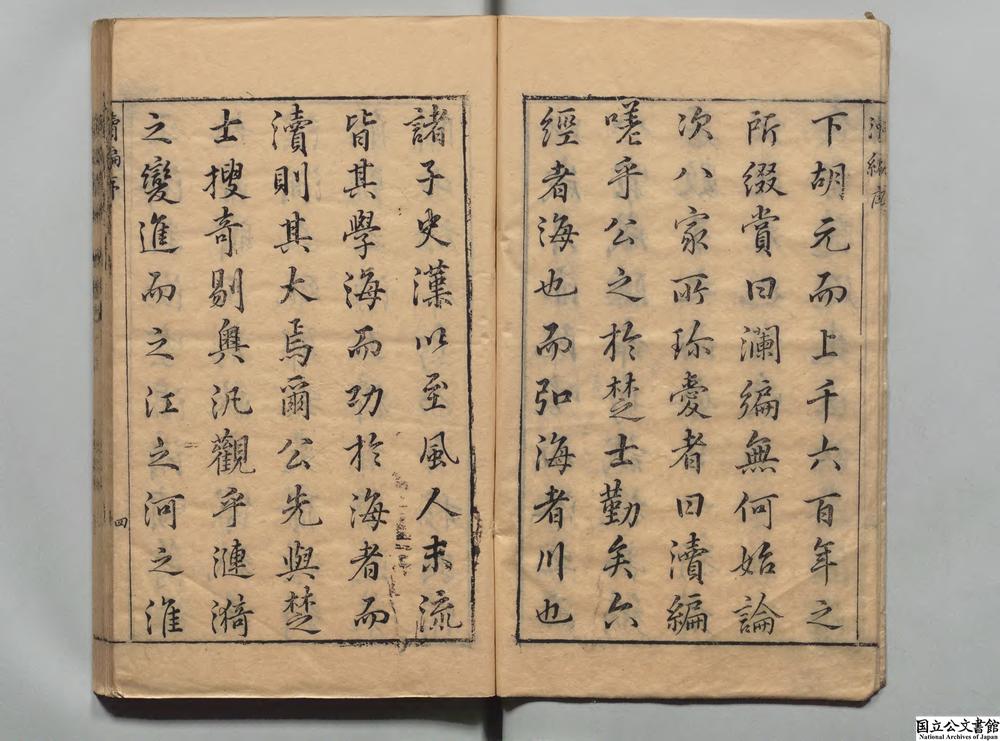 下胡元而上千六百年之
所綴賞曰瀾編無何始論
次八家所珍愛者曰瀆編
嗟乎公之於楚士勤矣六
經者海也而弘海者川也
諸子史漢以至風人末流
皆其學海而功於海者而
瀆則其大焉爾公先與楚
士搜奇剔輿汎觀乎漣漪
之變進而之江之河之淮
瀆編序
四
国立公文書館
National Archives of Japan